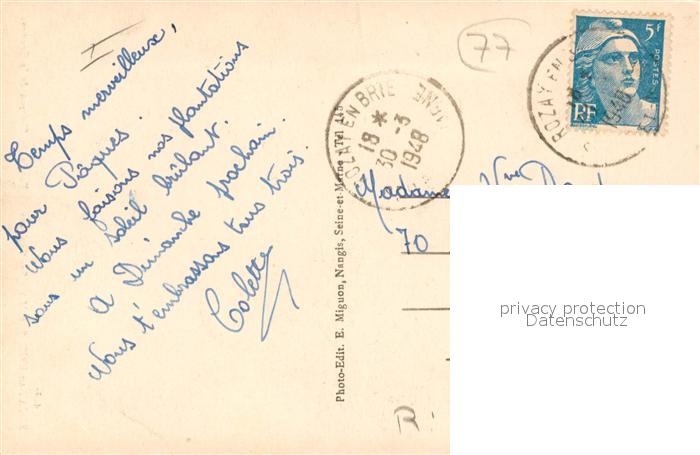 Temps merveilleux,
pour Pâques.
Nous faisons nos plantations
sous un soleil brûlant.
A Dimanche prochain.
Nous t'embrassons tous trois.
Colette
77
ROZAY EN BRIE
18 *
30 -3
1948
5F
POSTES
RF
ROZAY EN
1948
Madame Vve
70
Photo-Edit. E. Mignon, Nangis, Seine-et-Marne Tél.
privacy protection
Datenschutz